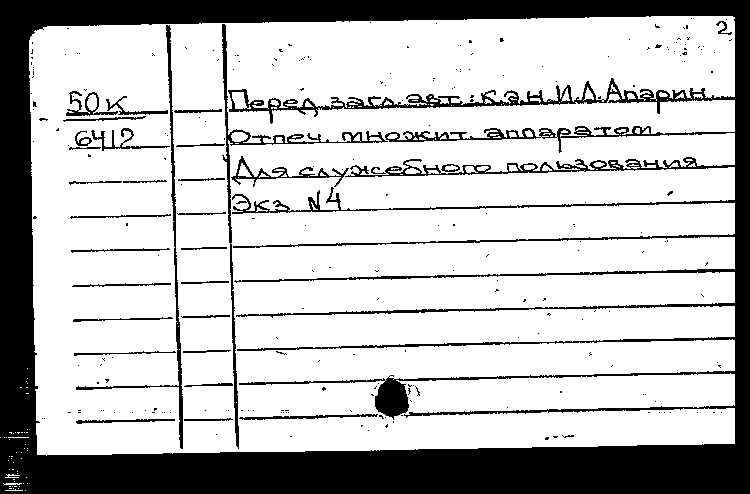 2
50к Перед загл. авт.: к.э.н. И.Л. Апарин.
6412 Отпеч. множит. аппаратом.
Для служебного пользования
Экз. N4